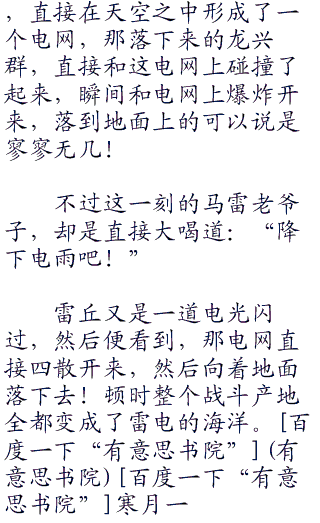 ，直接在天空之中形成了一
个电网，那落下来的龙兴
群，直接和这电网上碰撞了
起来，瞬间和电网上爆炸开
来，落到地面上的可以说是
寥寥无几！
不过这一刻的马雷老爷
子，却是直接大喝道：“降
下电雨吧！”
雷丘又是一道电光闪
过，然后便看到，那电网直
接四散开来，然后向着地面
落下去！顿时整个战斗产地
全都变成了雷电的海洋。[百
度一下“有意思书院”](有
意思书院)[百度一下“有意
思书院”]寒月一